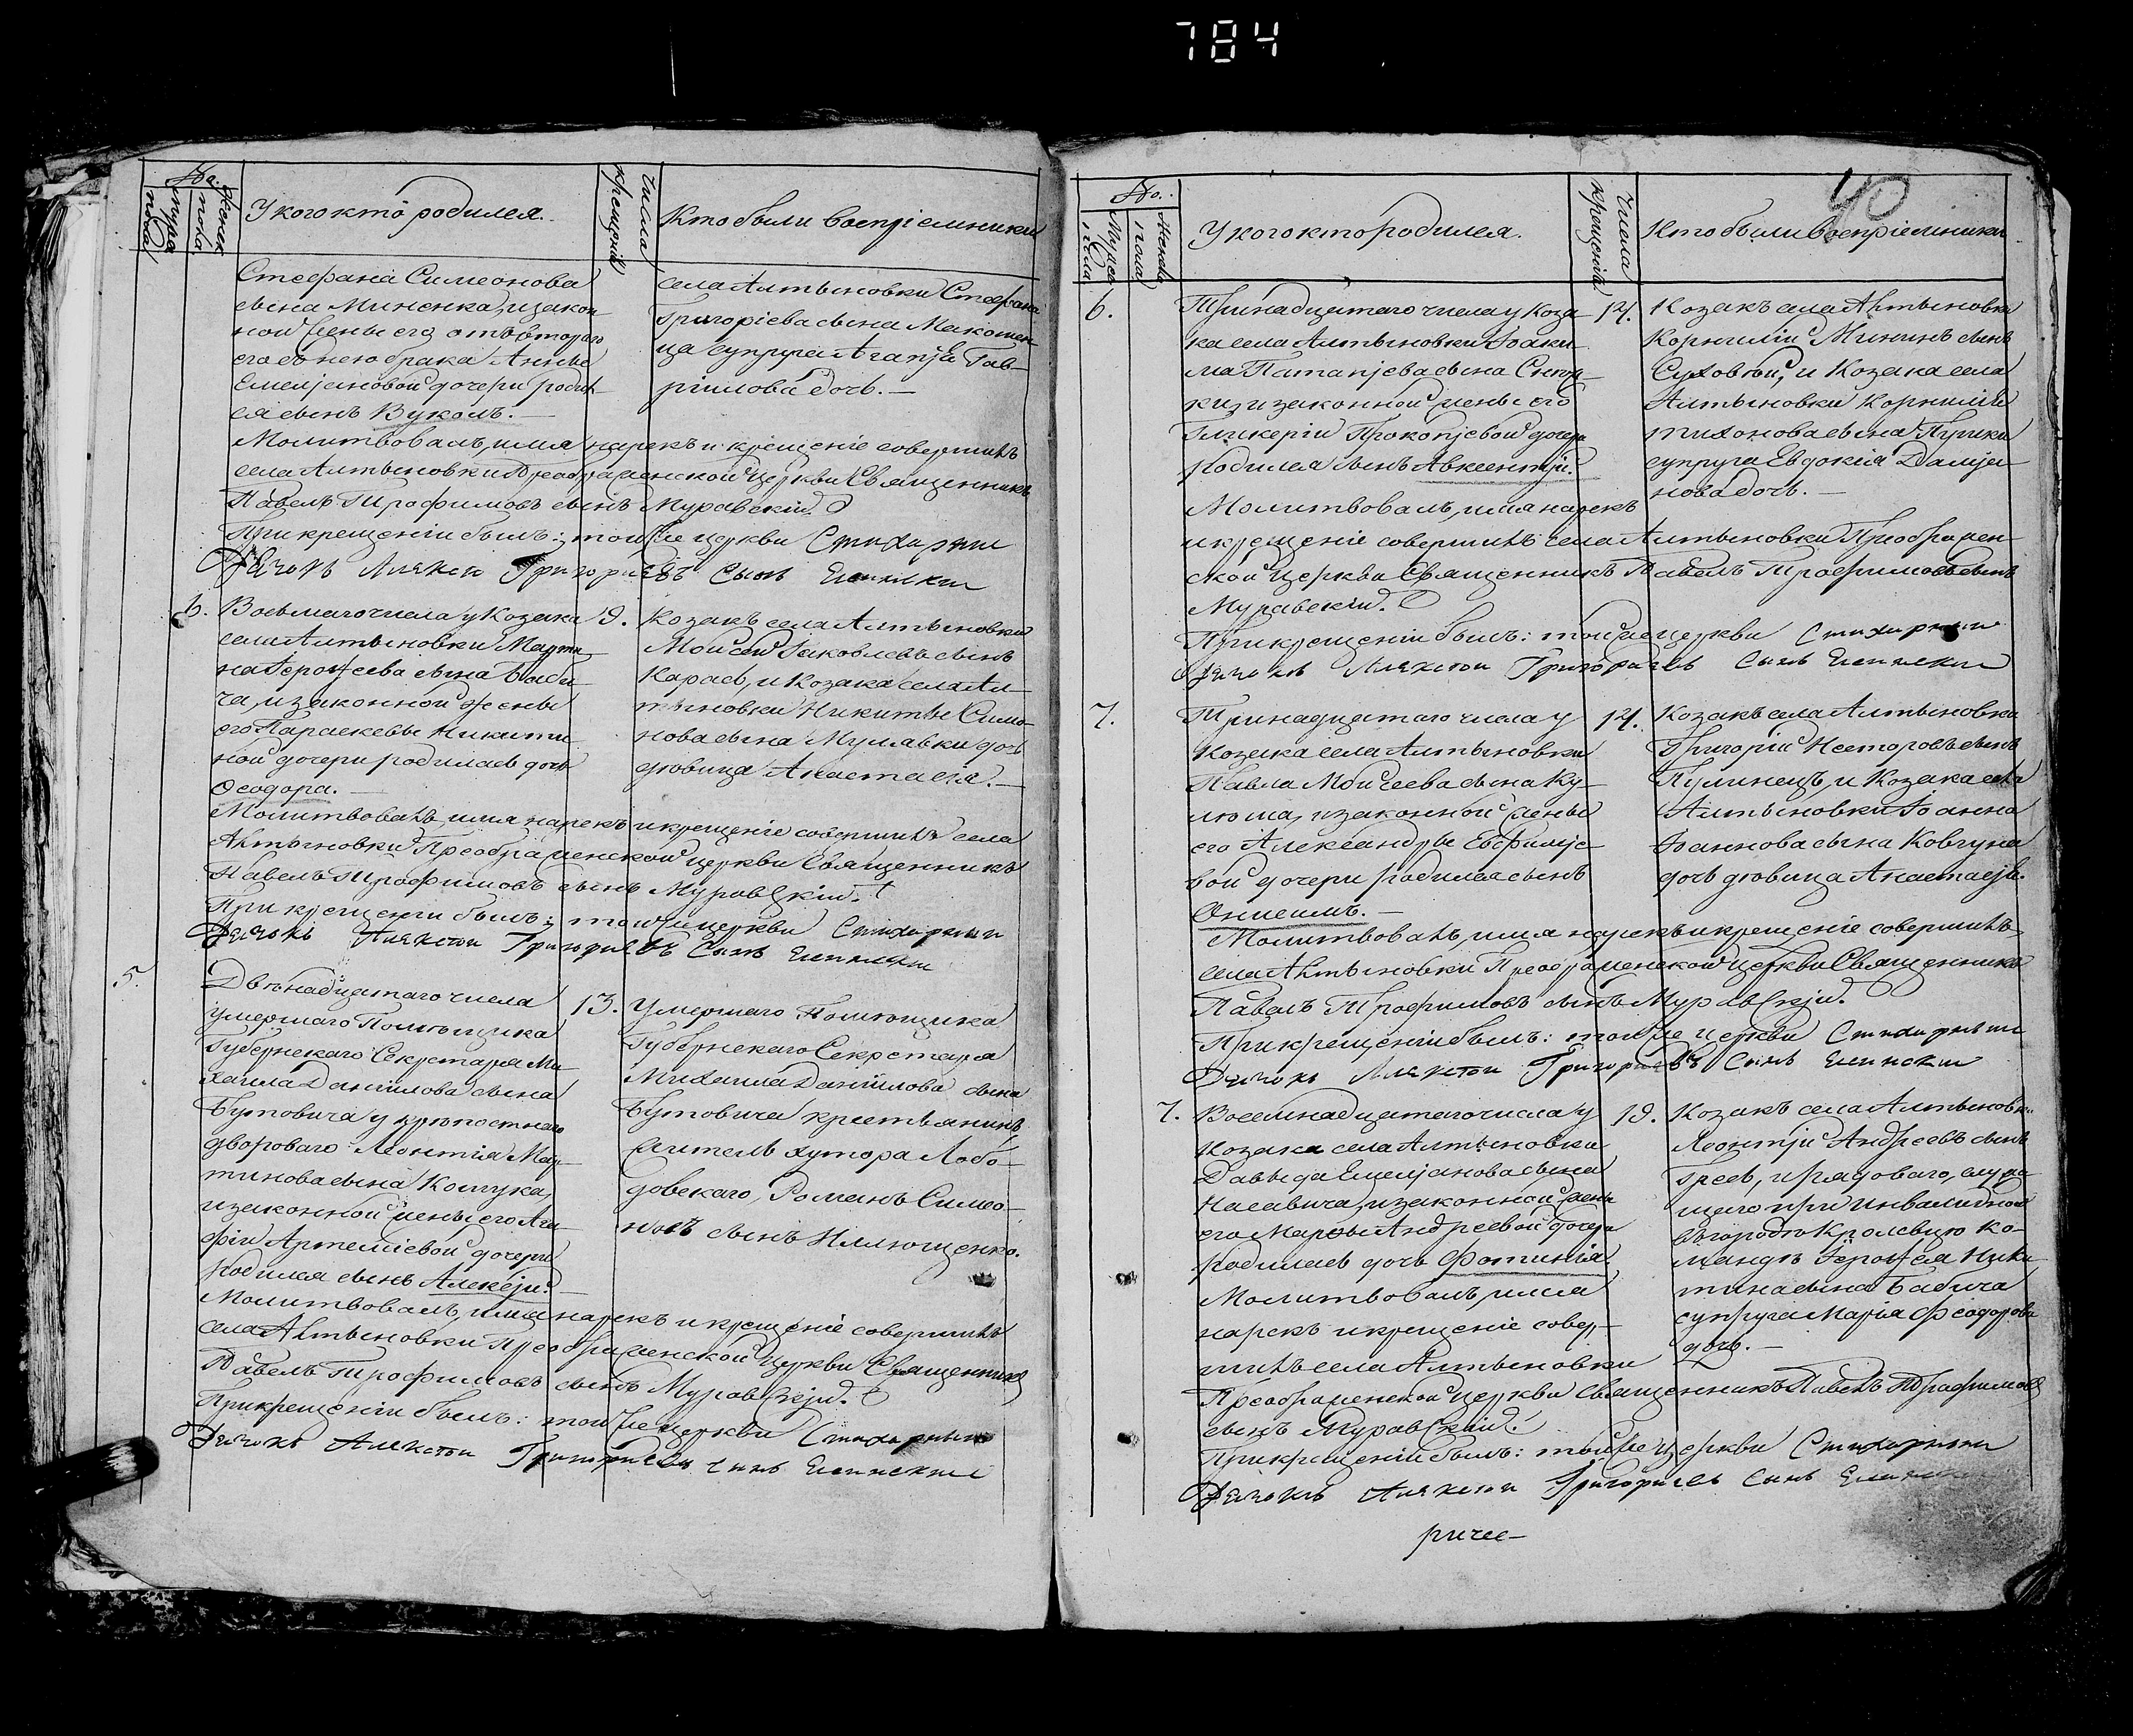 784
No.
мужеска пола
женска пола
У кого кто родился.
числа крещенія
Кто были воспріемники
Стефана Симеонова
сына Миненка, и закон
ной жены его отъ втораго
его съ нею брака Анны
Емельяновой дочери родил
ся сынъ Вуколъ.—
села Алтыновки Стефана
Григоріева сына Макошен
ца супруга Агапіа Гав-
ріилова дочь.—
Молитвовалъ, имя нарекъ и крещеніе совершилъ
села Алтыновки Преображенской церкви Священникъ
Павелъ Трофимовъ сынъ Муравскій.
При крещеніи былъ: той же церкви Стихарный
Дячокъ Алексѣй Григорьевъ сынъ
6.
Восьмаго числа у Козака
села Алтыновки Марти
на Іерофеева сына Баби
ча, и законной жены
его Параскевы Никити
ной дочери родилась дочь
Ѳеодора.—
9.
Козакъ села Алтыновки
Мойсей Іаковлевъ сынъ
Карась, и Козака села Ал-
тыновки Никиты Симо-
нова сына Мулявки дочь
дѣвица Анастасія.—
Молитвовалъ, имя нарекъ и крещеніе совершилъ села
Алтыновки Преображенской церкви Священникъ
Павелъ Трофимовъ сынъ Муравскій.
При крещеніи былъ: той же церкви Стихарный
Дячокъ Алексѣй Григорьевъ Сынъ
5.
Двѣнадцатаго числа
умершаго Помѣщика
Губернскаго Секретаря Ми
хаила Даніилова сына
Бутовича у крѣпостнаго
двороваго Леонтія Мар-
тинова сына Кошука,
и законной жены его Ага-
фіи Артеміевой дочери
родился сынъ Алексѣй.
13.
Умершаго Помѣщика
Губернскаго Секретаря
Михаила Даніилова сына
Бутовича крестьянинъ,
житель хутора Лобо-
довскаго, Романъ Симео-
новъ сынъ Иллющенко.
Молитвовалъ, имя нарекъ и крещеніе совершилъ
села Алтыновки Преображенской Церкви Священникъ
Павелъ Трофимовъ сынъ Муравскій.
При крещеніи былъ: той же церкви Стихарный
Дячокъ Алексѣй Григорьевъ сынъ
40
No.
Мужеска пола
Женска пола
У кого кто родился.
Числа крещеній
Кто были воспріемники
6.
Тринадцатаго числа у Коза
ка села Алтыновки Іоаки
ма Патапіева сына
ки, и законной жены его
Гликеріи Прокопіевой дочери
родился сынъ Авксентій.
14.
Козакъ села Алтыновки
Корнилій Мининъ сынъ
Суховій, и Козака села
Алтыновки Корнилія
Тихонова сына Пирики
супруга Евдокія Даміа-
нова дочь.—
Молитвовалъ, имя нарекъ
и крещеніе совершилъ села Алтыновки Преображен-
ской церкви Священникъ Павелъ Трофимовъ сынъ
Муравскій.
При крещеніи былъ: той же церкви Стихарный
Дячокъ Алексѣй Григорьевъ Сынъ
7.
Тринадцатаго числа у
Козака села Алтыновки
Павла Моисеева сына Ку-
люша, и законной жены
его Александры Евфиміе-
вой дочери родился сынъ
Онисимъ.—
14.
Козакъ села Алтыновки
Григорій Несторовъ сынъ
Пулинецъ, и Козака села
Алтыновки Іоанна
Іоаннова сына Ковгуна
дочь дѣвица Анастасіа.
Молитвовалъ, имя нарекъ и крещеніе совершилъ
села Алтыновки Преображенской церкви Священникъ
Павелъ Трофимовъ сынъ Муравскій.
При крещеніи былъ: той же церкви Стихарный
Дячокъ Алексѣй Григорьевъ Сынъ
7.
Восемнадцатаго числа у
Козака села Алтыновки
Давыда Емельянова сына
Насавича, и законной жены
его Марфы Андреевой дочери
родилась дочь Фотинія.
19.
Козакъ села Алтыновки
Леонтій Андреевъ сынъ
Гресь, и рядоваго, служа
щаго при Инвалидной
въ городѣ Кролевцѣ Ко-
мандѣ Іерофея Ники
тина сына Бабича
супруга Марія Феодорова
дочь.—
Молитвовалъ, имя
нарекъ и крещеніе совер-
шилъ села Алтыновки
Преображенской церкви Священникъ Павелъ Трофимовъ
сынъ Муравскій.
При крещеніи былъ: той же церкви Стихарный
Дячокъ Алексѣй Григорьевъ Сынъ